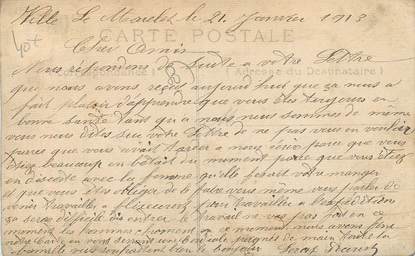 Ville Le Marclet le 21 Janvier 1913
CARTE POSTALE
40+
Cher Amis
Correspondance (Adresse du Destinataire)
Nous répondons de suite a votre Lettre
que nous avons reçue aujourd'hui que ça nous a
fait plaisir d'apprendre que vous êtes toujours en
bonne santé tant qu'a nous nous sommes de même
vous nous dites sur votre Lettre de ne pas vous en vouloir
parce que vous avait tarder a nous parce que vous
beaucoup en du moment parce que vous étiez
en avec la femme qu'elle fesait votre manger
et que vous êtes obliger de le faire vous même vous parler de
venir travailler a flixecourt pour travailler a
ça sera difficile de rentrer le travail ne vas pas fort en ce
moment les hommes chroment en ce moment nous avons
notre Carte en vous serrant une cordiale poignée de main toute la
famille vous souhaitent bien le bonjour